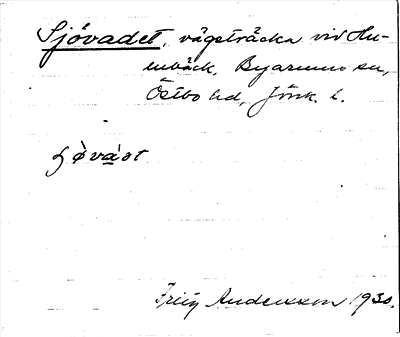 Sjövadet, vägsträcka vid Hu-
enbäck, Byarums sn,
Östbo hd, Jönk. l.
ʃø̀và̱ət
Friig Andersson 1930.